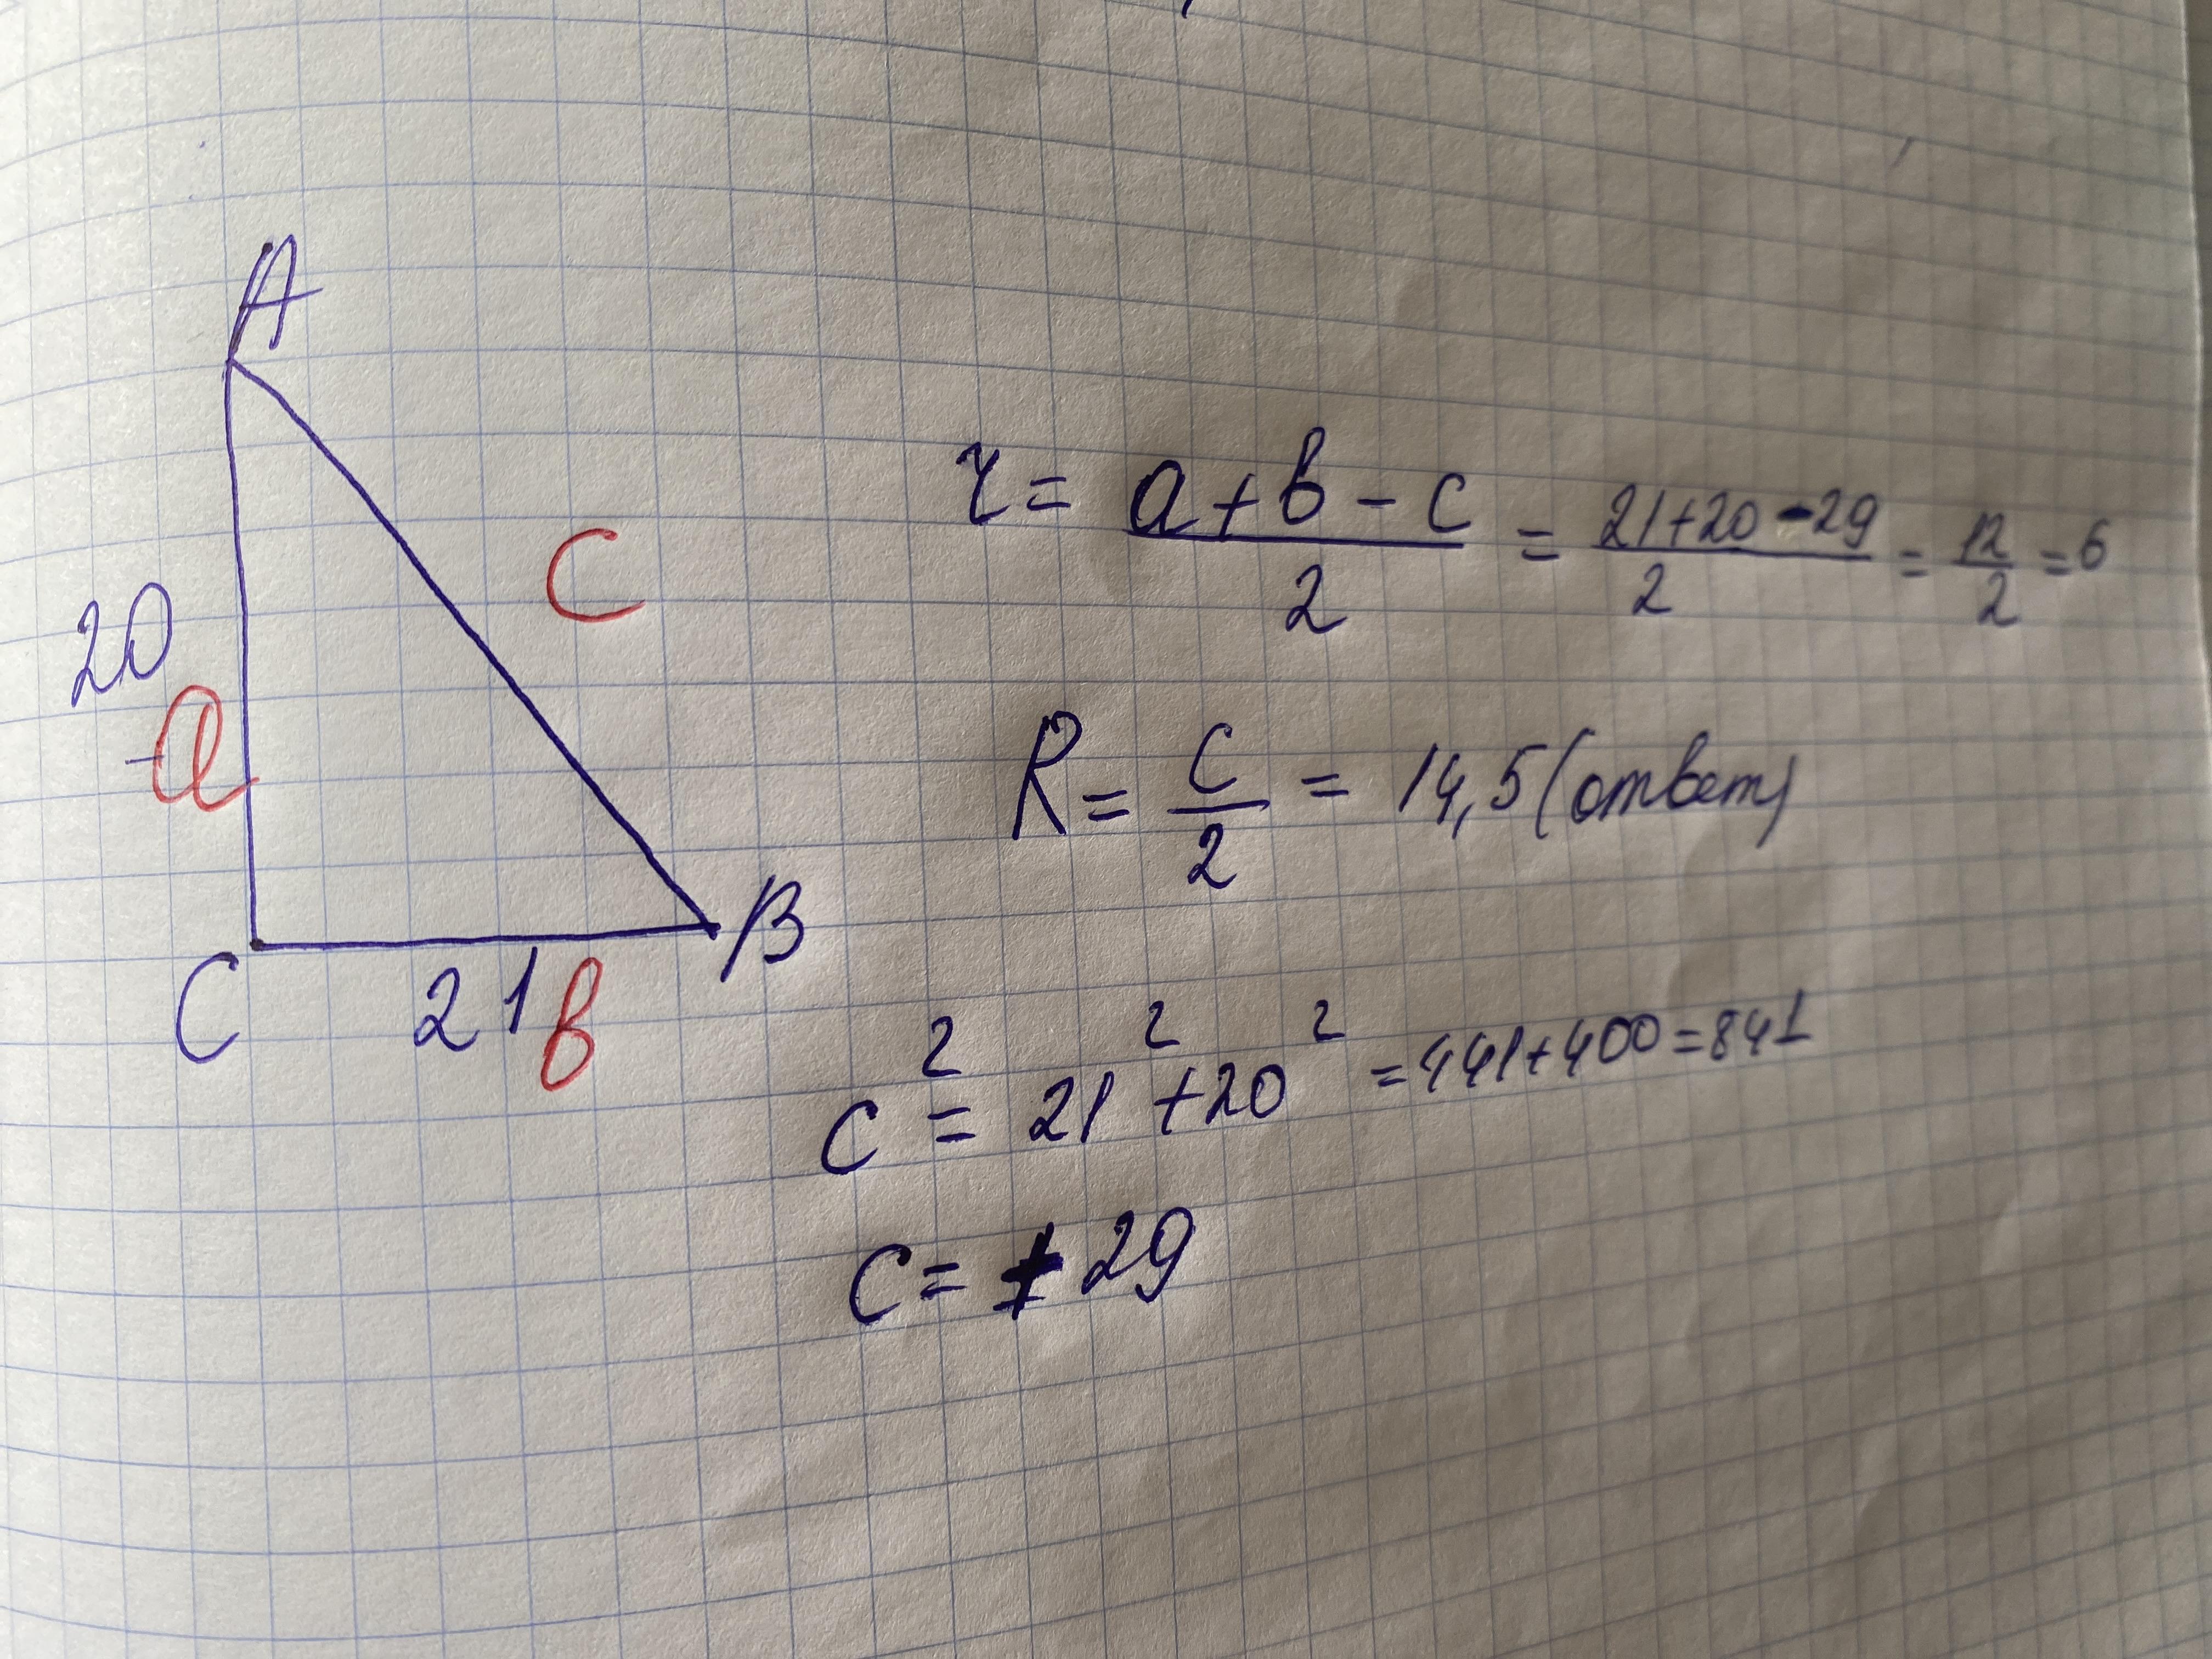 A
C
20
a
C
B
21 в
r = a + в - c / 2 = 21+20-29 / 2 = 12 / 2 = 6
R = c / 2 = 14,5 (ответ)
c² = 21² + 20² = 441+400=841
c = 29